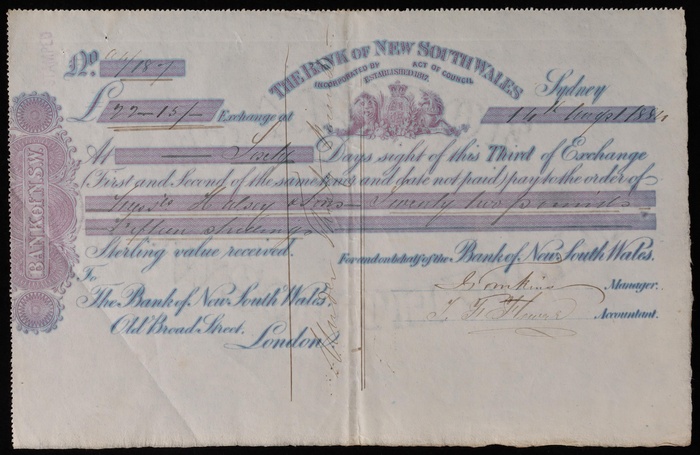 No. 84/187
THE BANK OF NEW SOUTH WALES
INCORPORATED BY ACT OF COUNCIL
ESTABLISHED 1817
Sydney
£ 22-15/- Exchange at
14th
At Sixty Days sight of this Third of Exchange
(First and Second of the same tenor and date not paid) pay to the order of
Halsey & Sons Twenty two pounds
Fifteen shillings
Sterling value received. For and on behalf of the Bank of New South Wales.
To
Manager.
The Bank of New South Wales,
Accountant.
Old Broad Street,
London
BANK OF N.S.W.